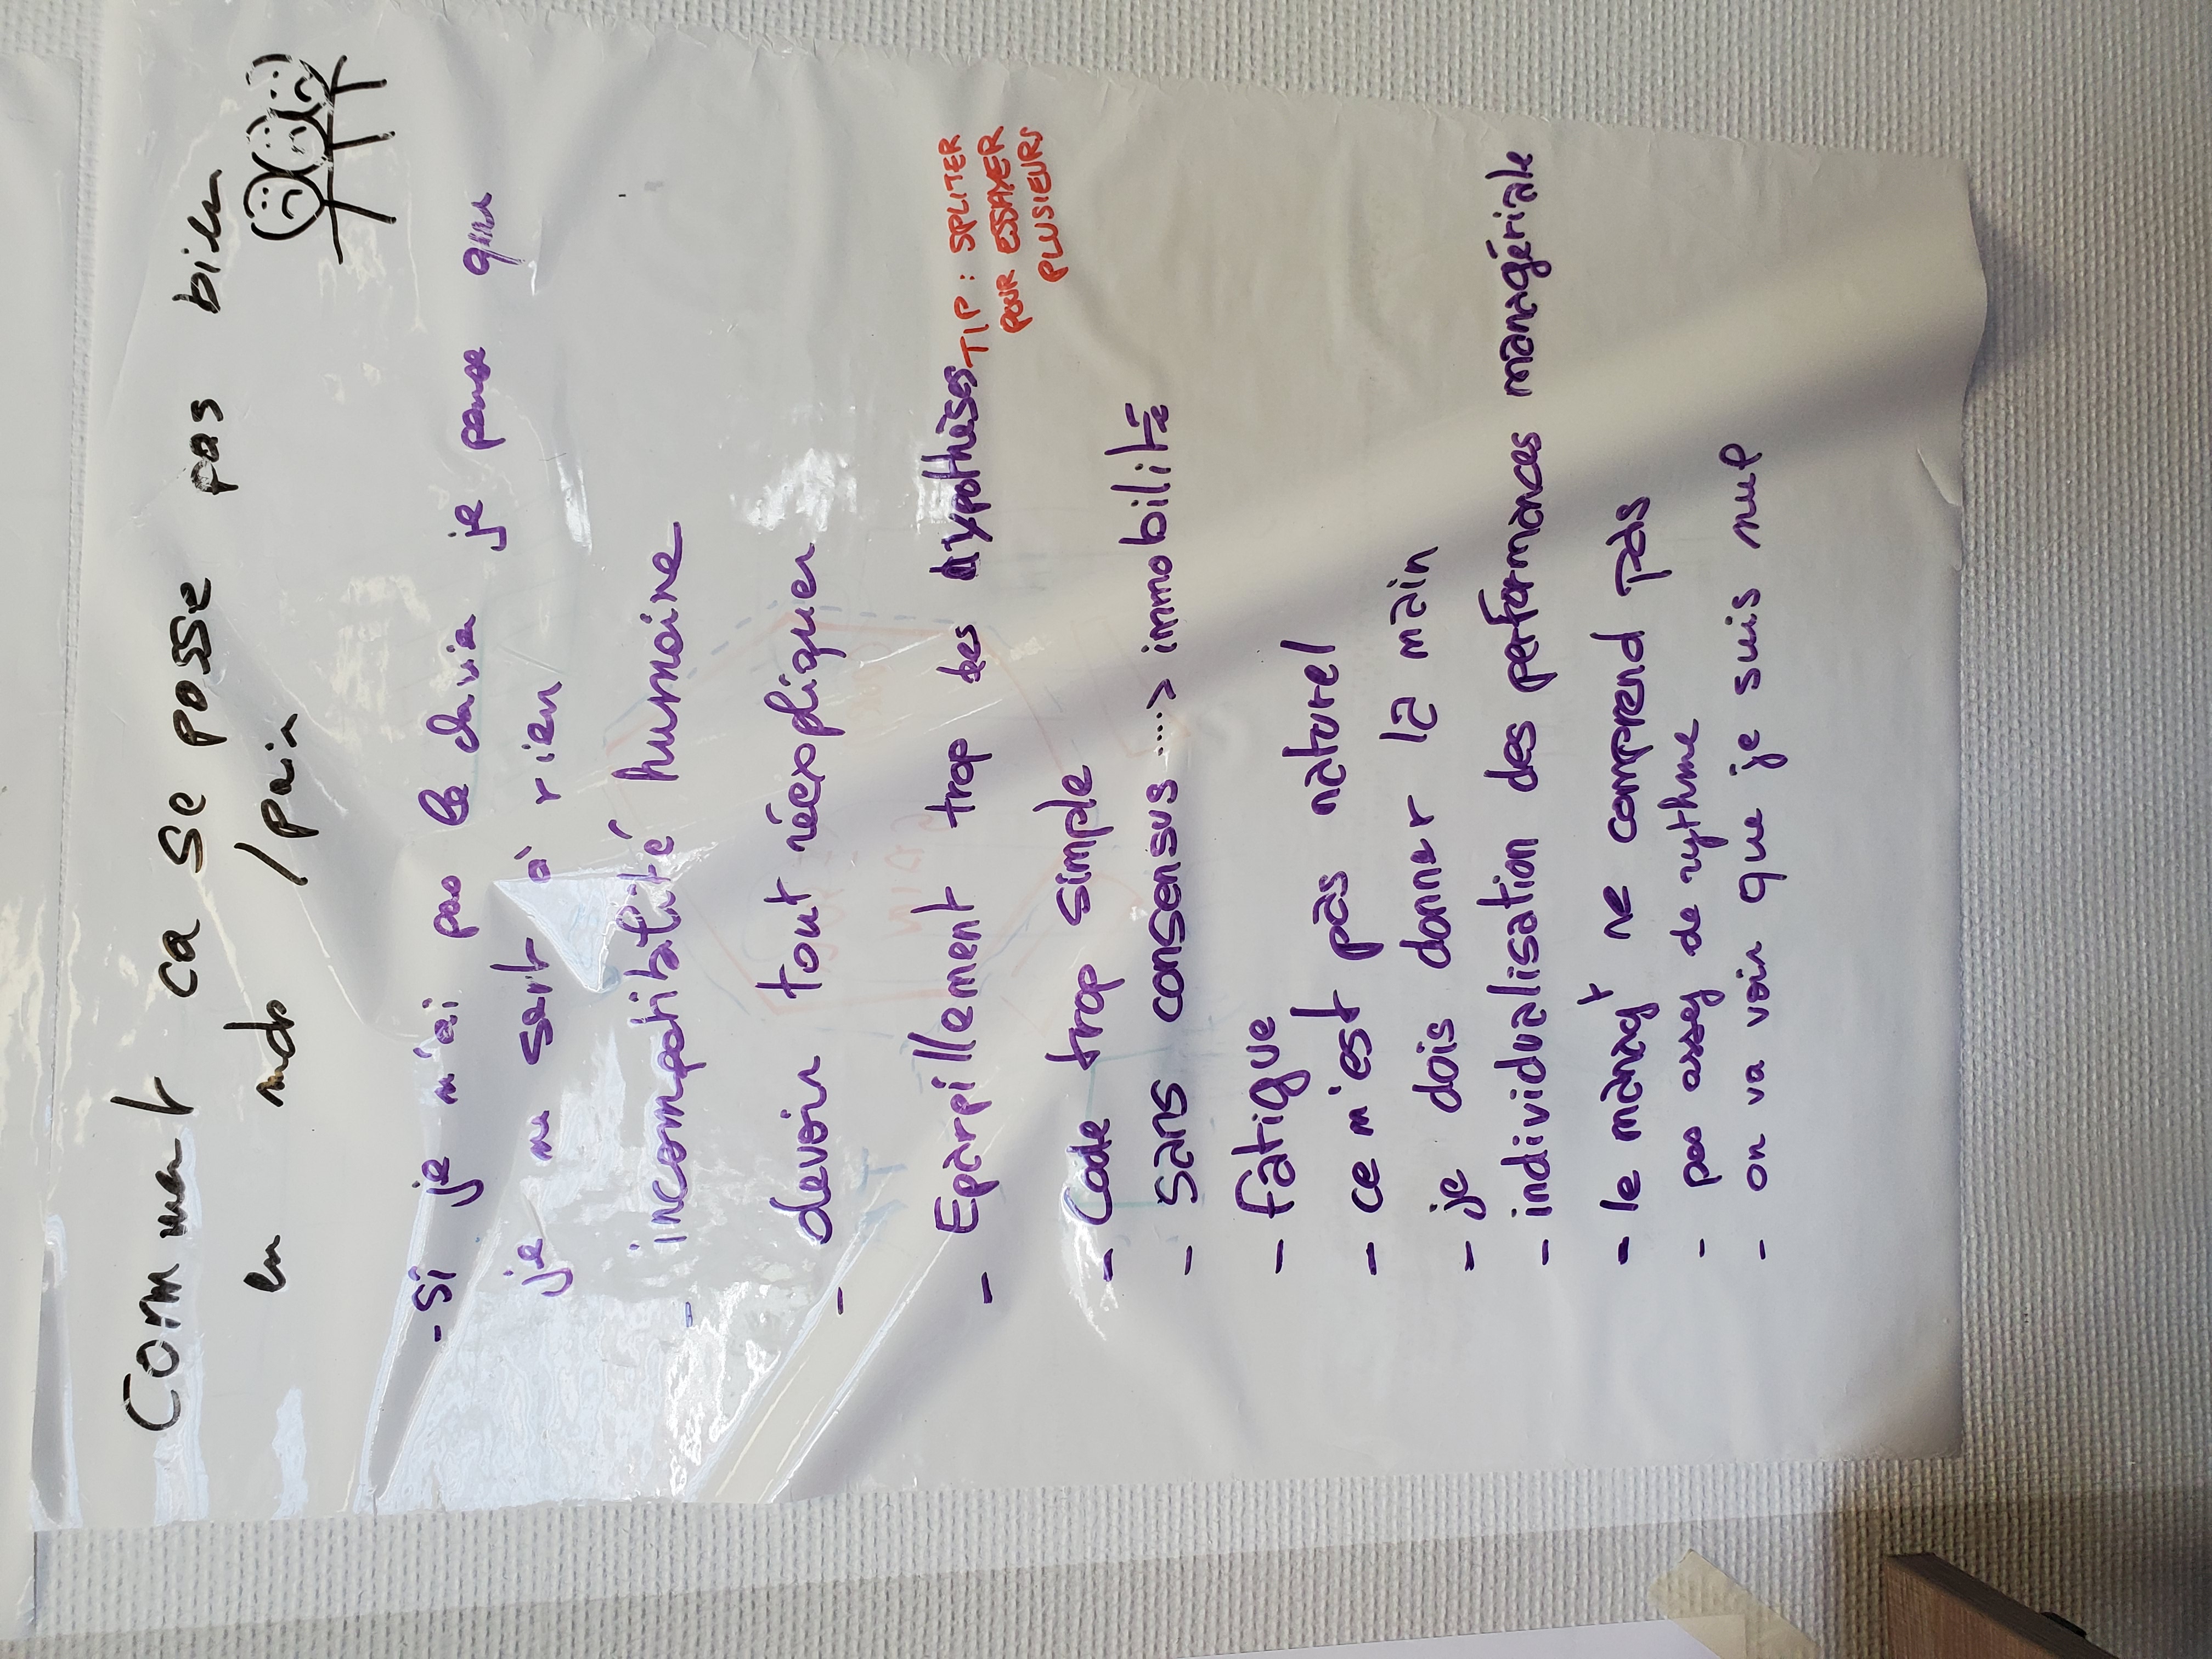 Comment ca se passe pas bien
en mob /pair
- Si je n'ai pas le clavier je pense que
je ne sert à rien
- incompatibilité humaine
- devoir tout réexpliquer
- Eparpillement trop des hypothèses
TIP : SPLITER
POUR ESSAYER
PLUSIEURS
- Code trop simple
- sans consensus ....> immobilité
- fatigue
- ce n'est pas naturel
- je dois donner la main
- individualisation des performances managériale
- le managt ne comprend pas
- pas assez de rythme
- on va voir que je suis nul